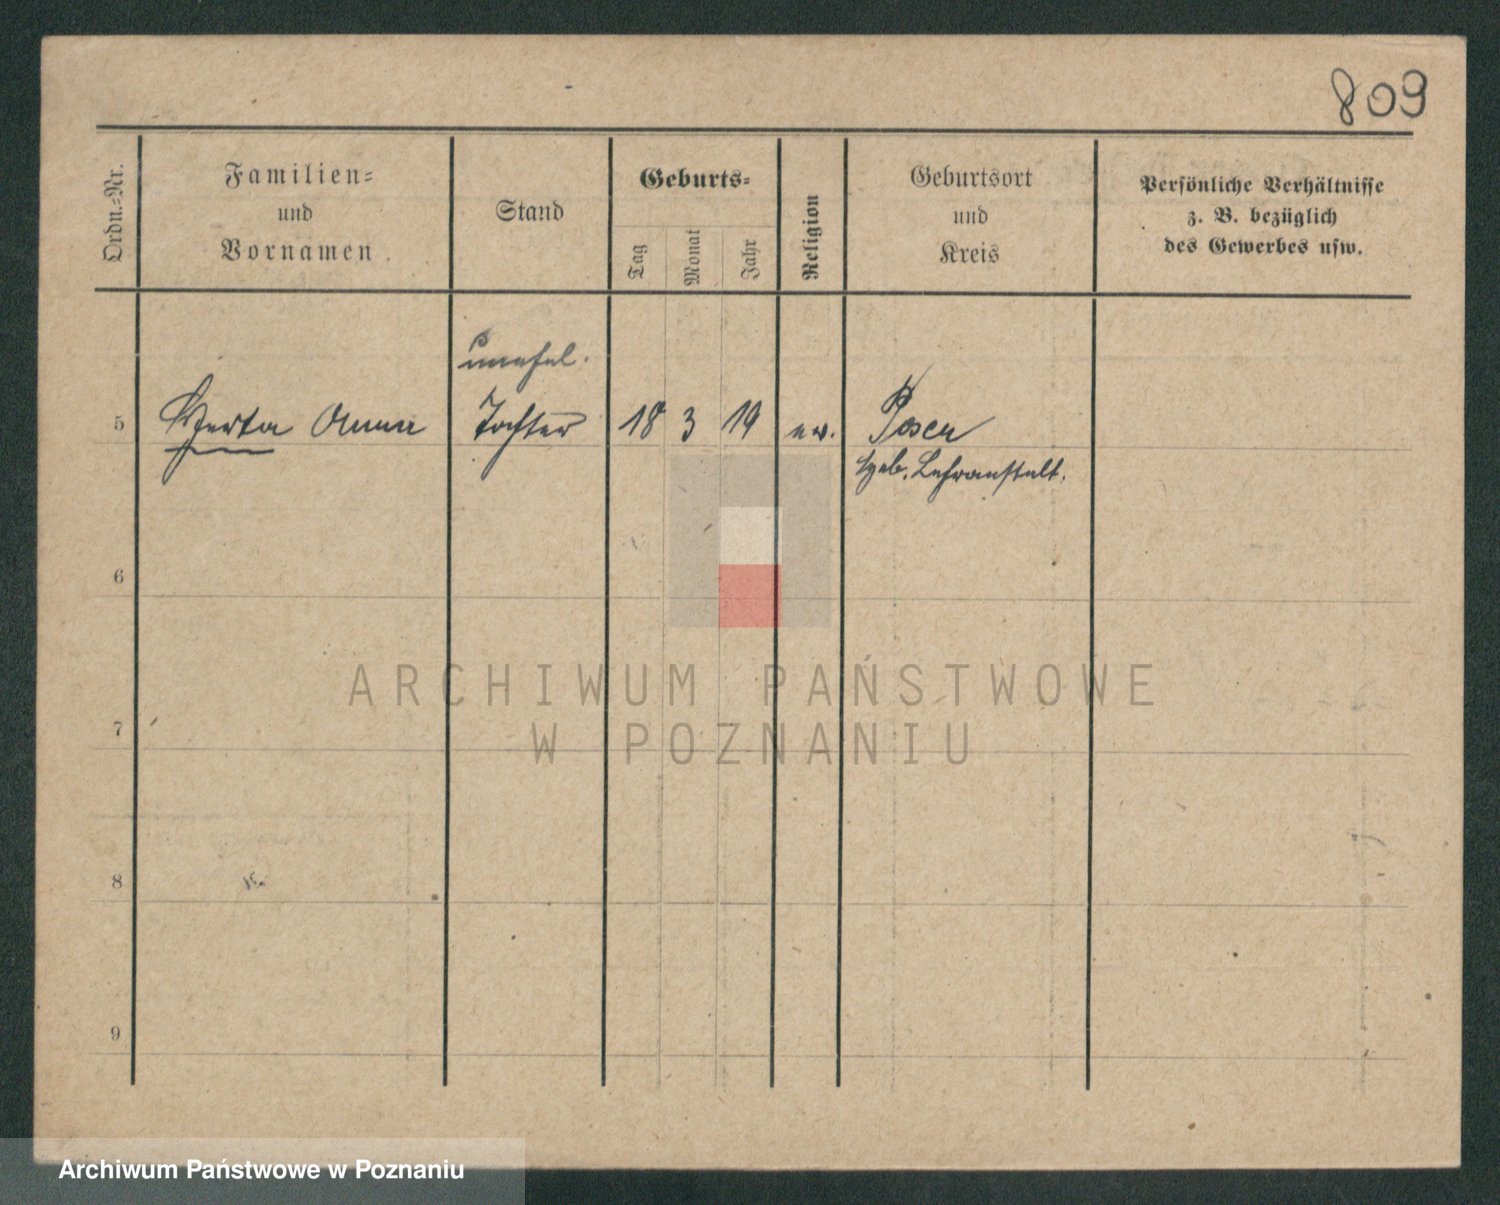 809
Ordn.=Nr.
Familien=
und
Vornamen
Stand
Geburts=
Tag
Monat
Jahr
Religion
Geburtsort
und
Kreis
Persönliche Verhältnisse
z. B. bezüglich
des Gewerbes usw.
unehel.
5 Herta Anna Tochter 18 3 19 ev. Posen
Heb. Lehranstalt.
6
7
8
9
ARCHIWUM PAŃSTWOWE
W POZNANIU
Archiwum Państwowe w Poznaniu